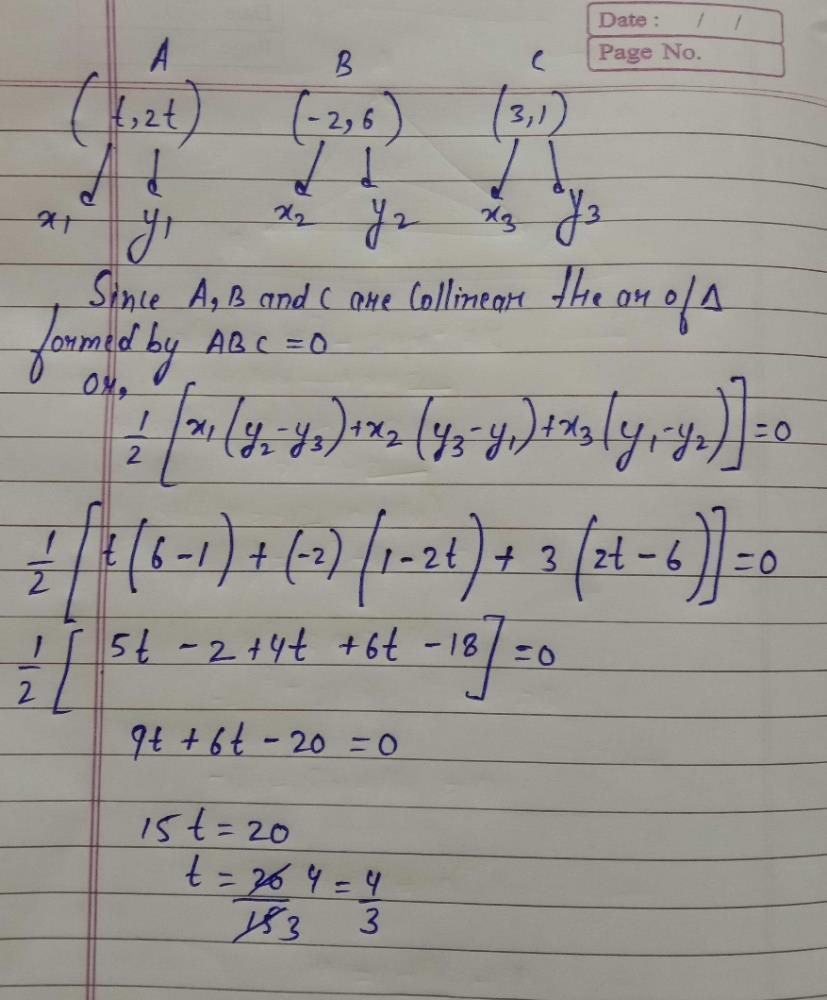 Date : / /
Page No.
A B C
(t, 2t) (-2, 6) (3, 1)
x₁ y₁ x₂ y₂ x₃ y₃
Since A, B and C are Collinear the ar of Δ
formed by ABC = 0
or,
1/2 [x₁(y₂-y₃)+x₂(y₃-y₁)+x₃(y₁-y₂)] = 0
1/2 [t(6-1) + (-2)(1-2t) + 3(2t-6)] = 0
1/2 [5t - 2 + 4t + 6t - 18] = 0
9t + 6t - 20 = 0
15t = 20
t = 20 4 / 15 3 = 4/3